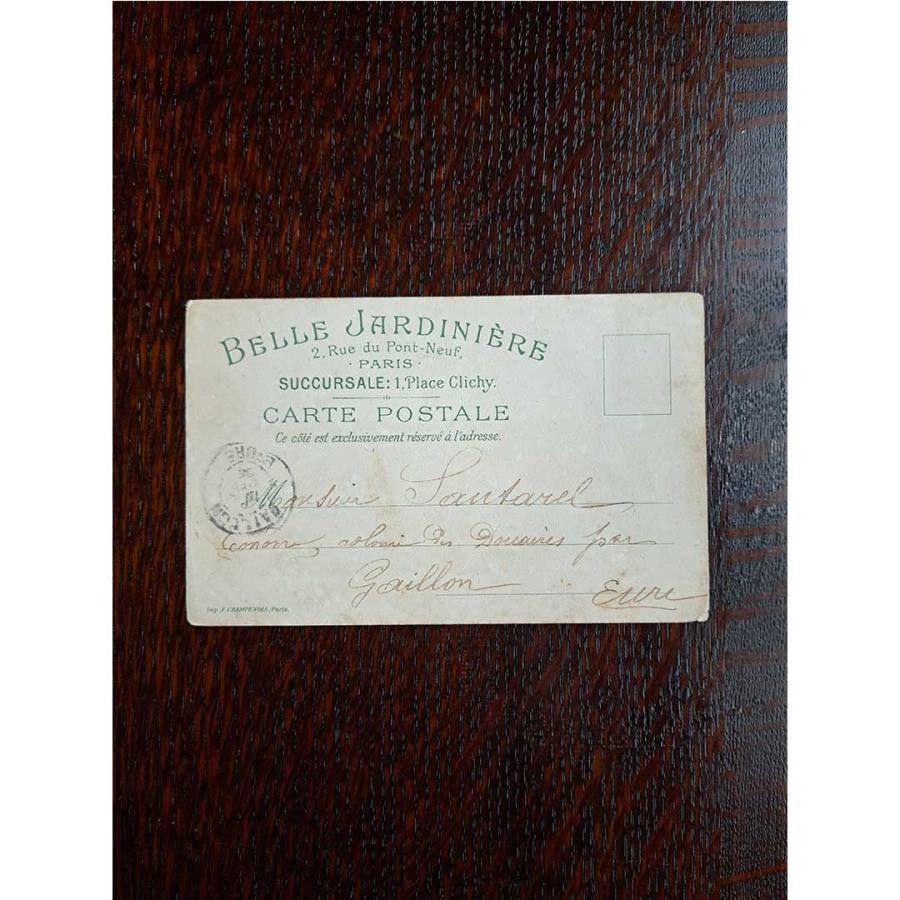 BELLE JARDINIÈRE
2, Rue du Pont-Neuf,
· PARIS ·
SUCCURSALE: 1, Place Clichy.
CARTE POSTALE
Ce côté est exclusivement réservé à l'adresse.
GAILLON
EURE
Monsieur Santarel
Econome, colonie Des Douaires par
Gaillon
Eure
Imp. F. CHAMPENOIS, Paris.